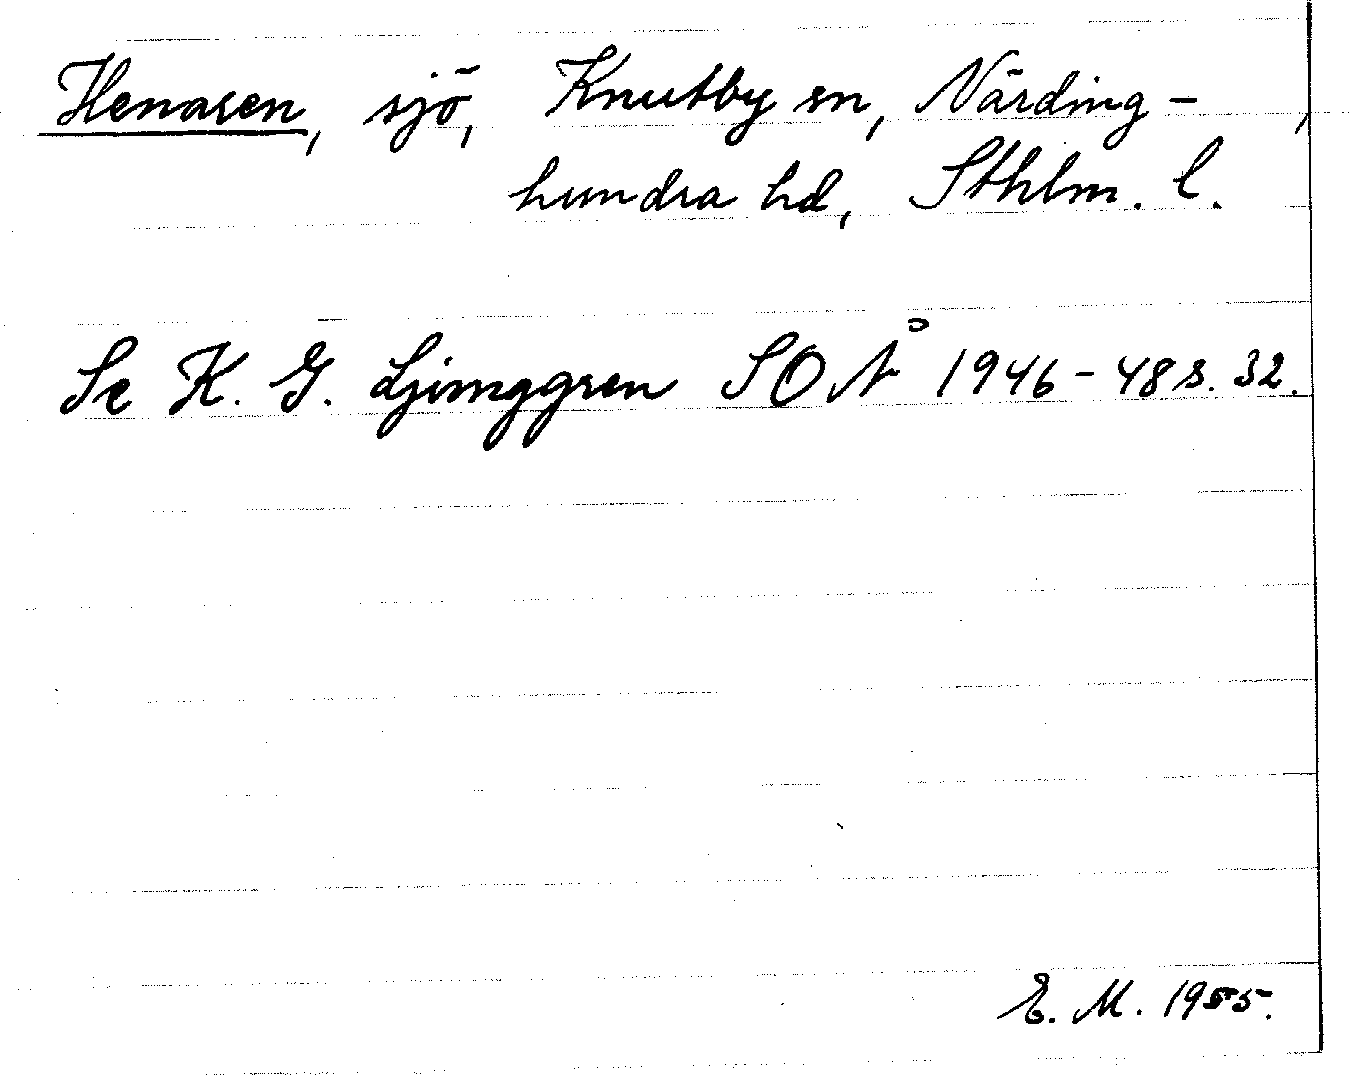 Henaren, sjö, Knutby sn, Närding-
hundra hd, Sthlm. l.
Se K. G. Ljunggren SOÅ 1946-48 s. 32.
E. M. 1955.